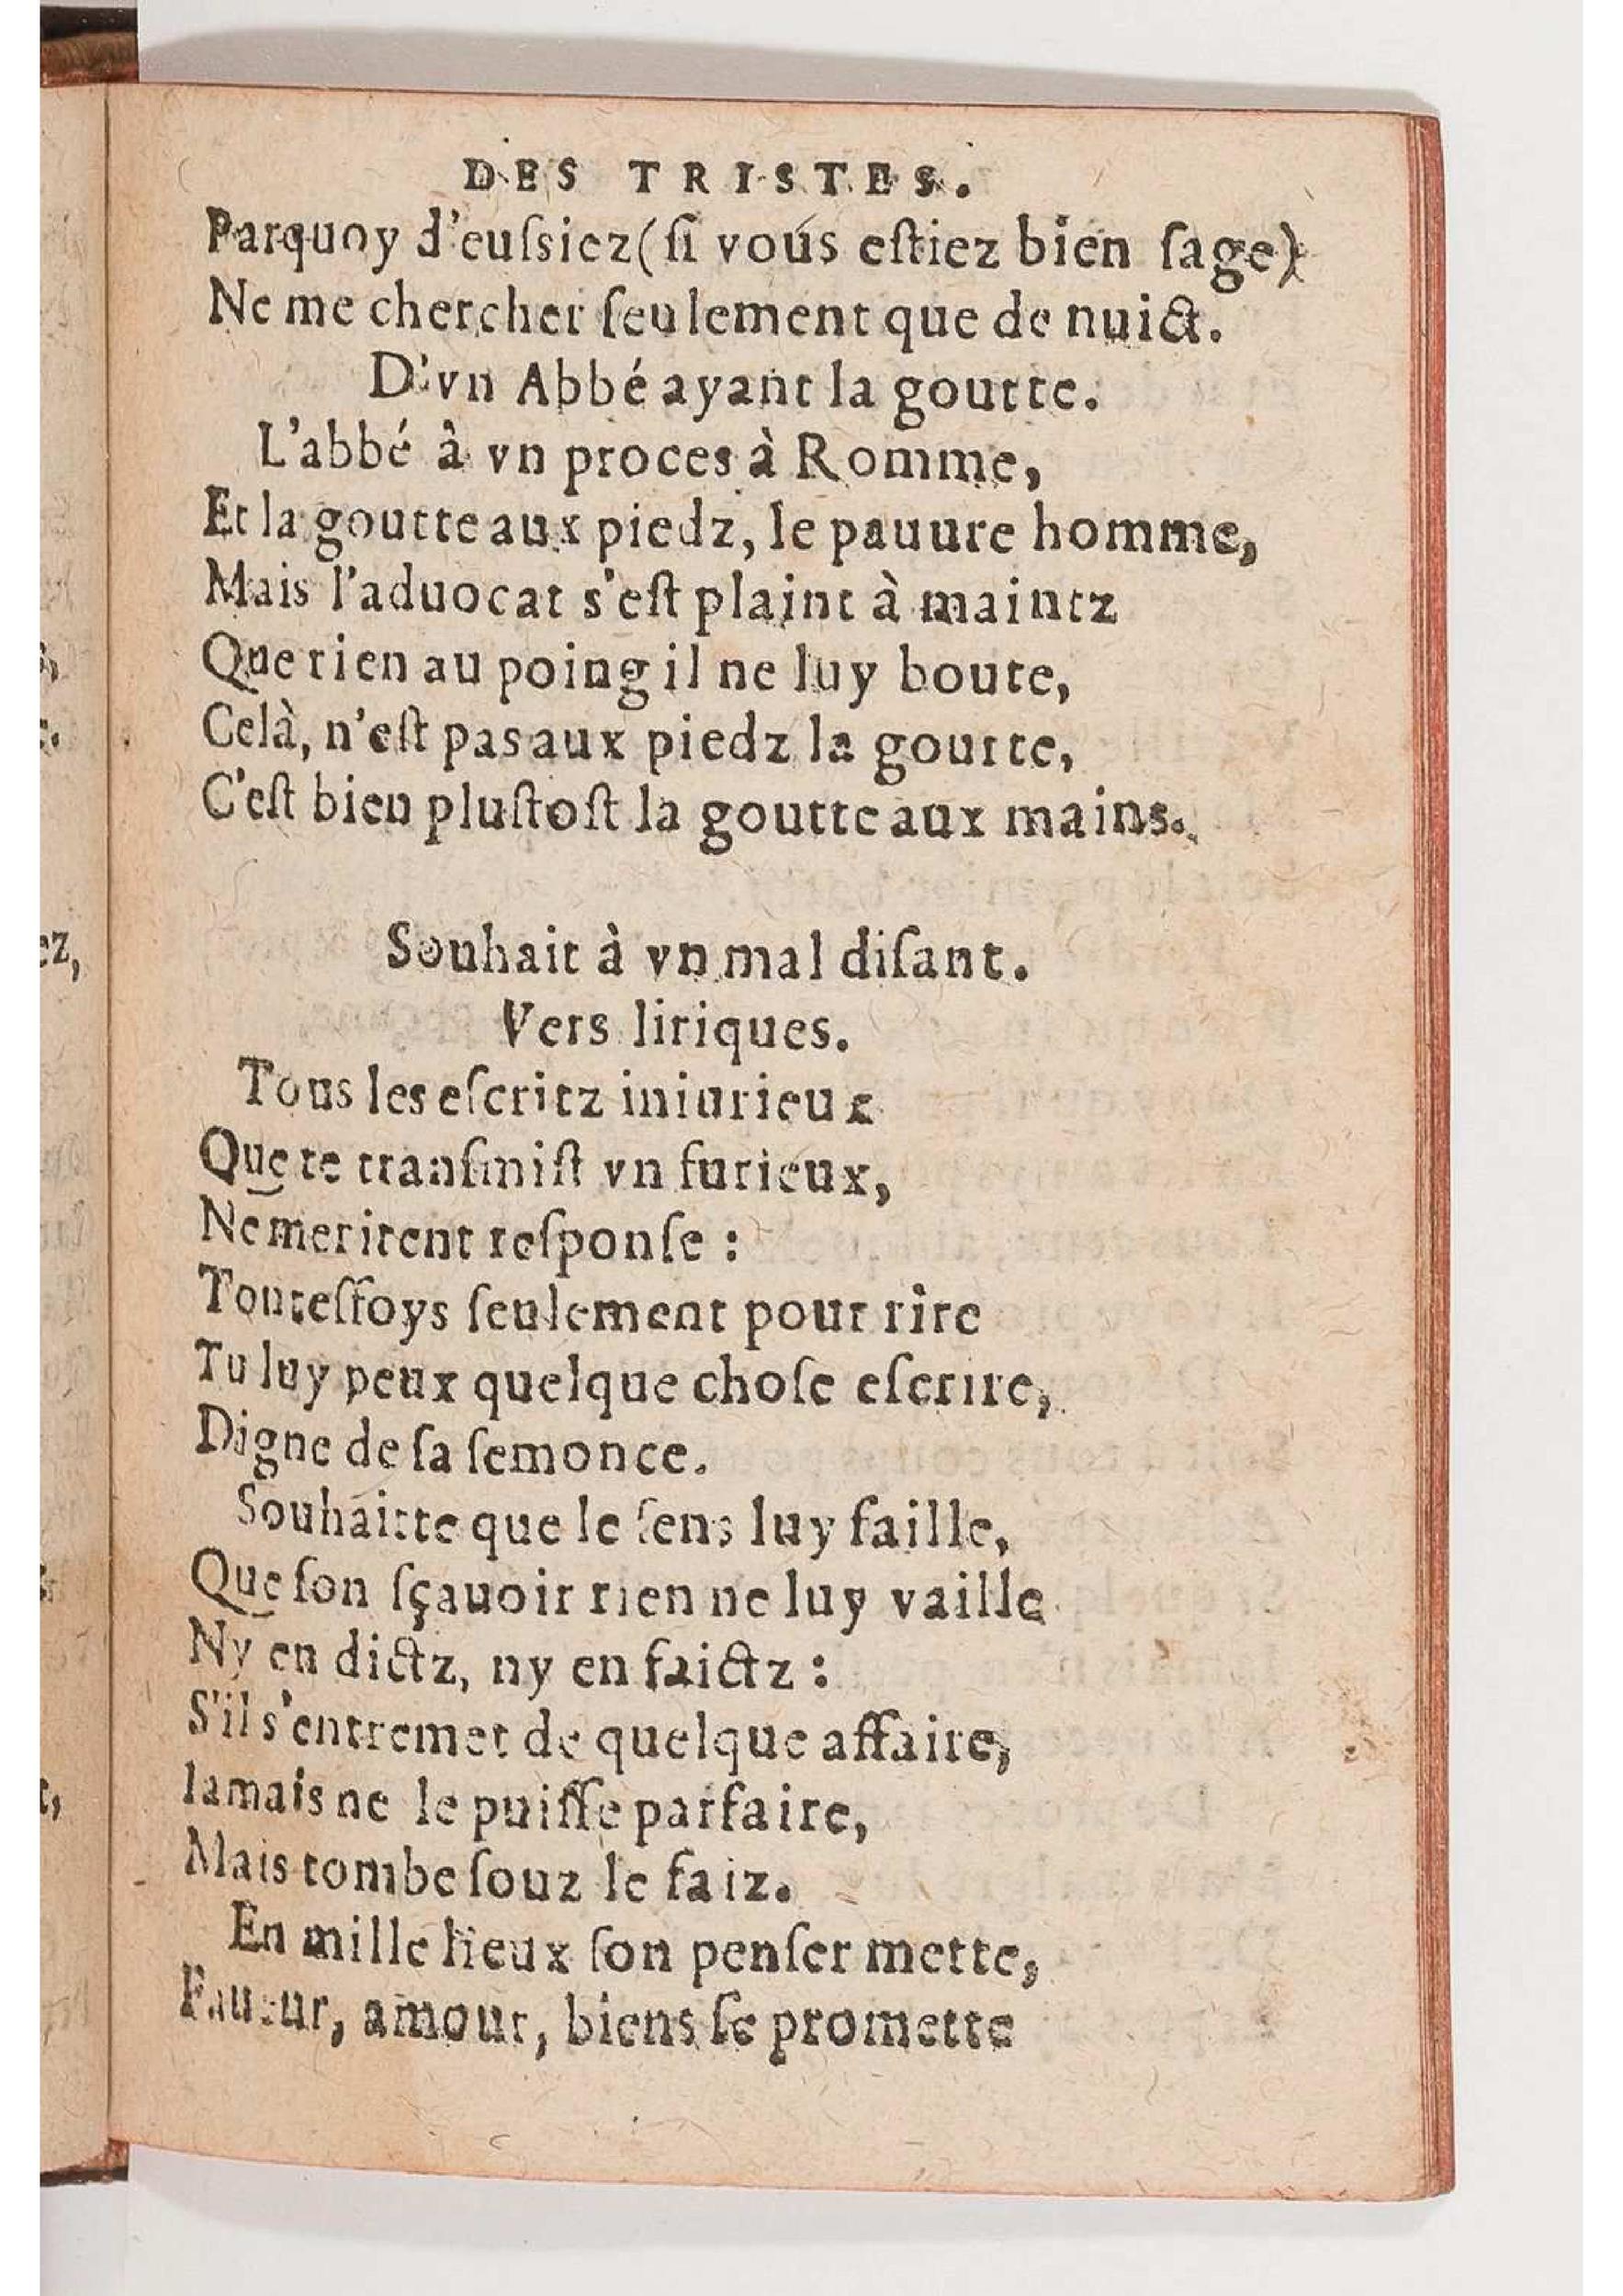 DES TRISTES.
Parquoy d'eussiez (si vous estiez bien sage)
Ne me chercher seulement que de nuict.
D'vn Abbé ayant la goutte.
L'abbé â vn proces à Romme,
Et la goutte aux piedz, le pauure homme,
Mais l'aduocat s'est plaint à maintz
Que rien au poing il ne luy boute,
Celà, n'est pas aux piedz la goutte,
C'est bien plustost la goutte aux mains.
Souhait à vn mal disant.
Vers liriques.
Tous les escritz iniurieux
Que te transmist vn furieux,
Ne meritent response :
Toutesfoys seulement pour rire
Tu luy peux quelque chose escrire,
Digne de sa semonce.
Souhaitte que le sens luy faille,
Que son sçauoir rien ne luy vaille
Ny en dictz, ny en faictz :
S'il s'entremet de quelque affaire,
Iamais ne le puisse parfaire,
Mais tombe souz le faiz.
En mille lieux son penser mette,
Faueur, amour, biens se promette